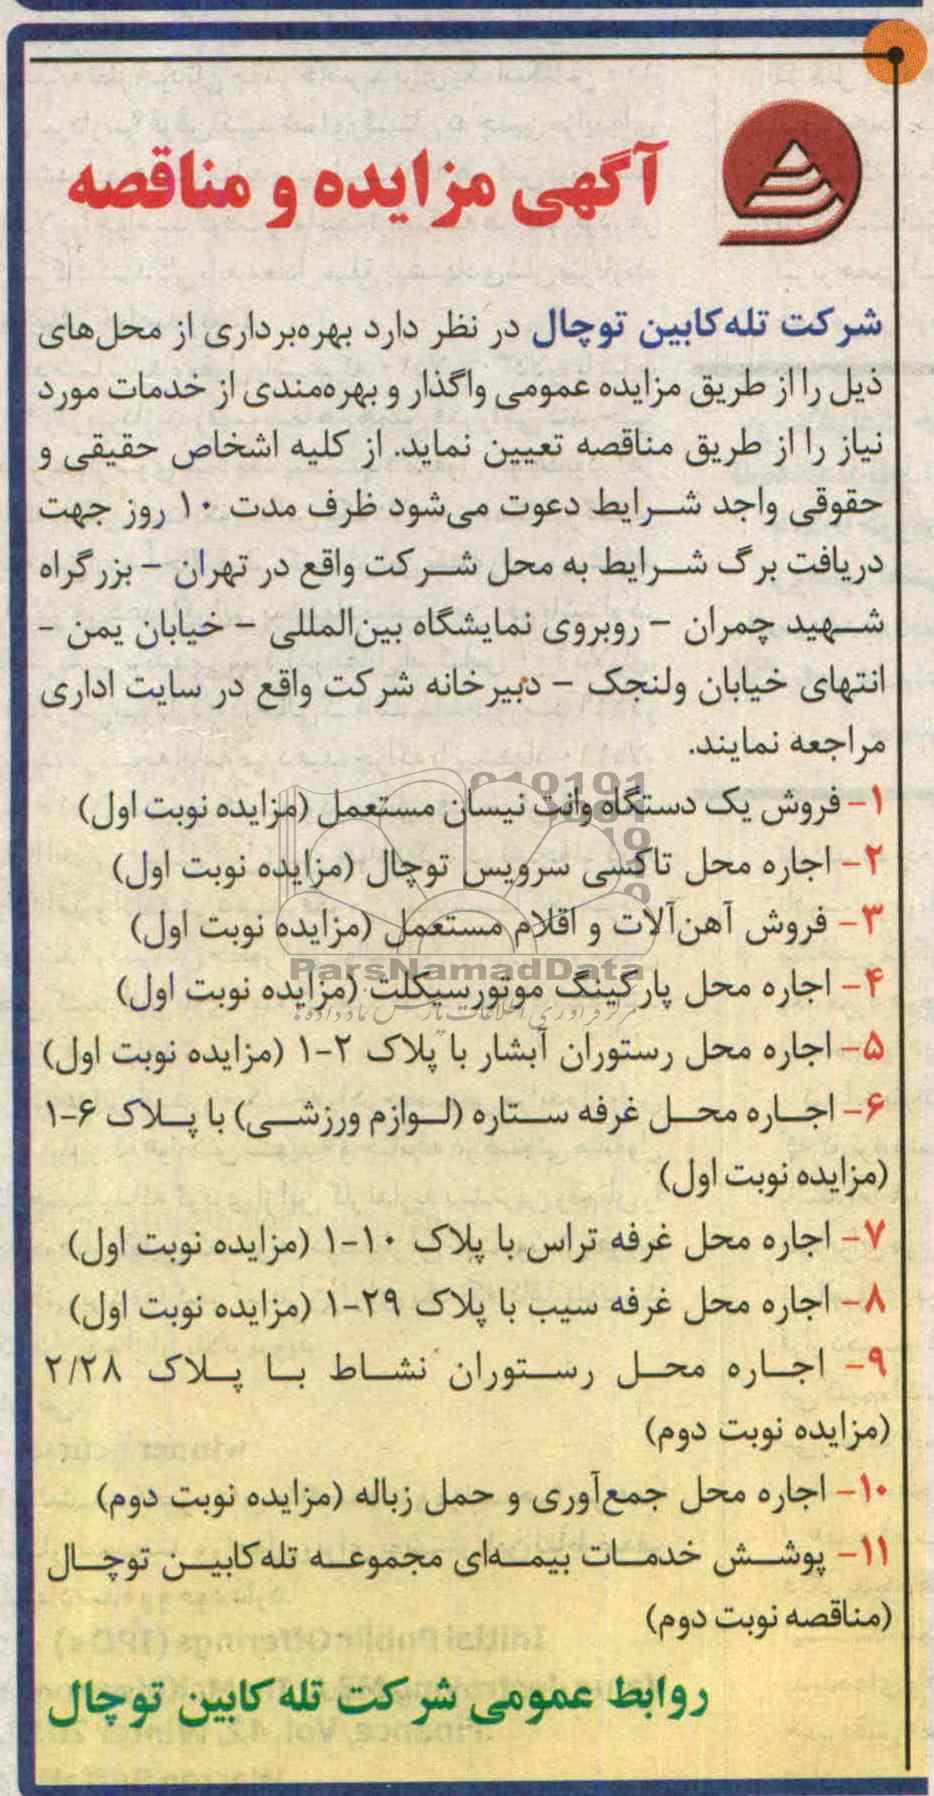 آگهی مزایده و مناقصه
شرکت تله‌کابین توچال در نظر دارد بهره‌برداری از محل‌های
ذیل را از طریق مزایده عمومی واگذار و بهره‌مندی از خدمات مورد
نیاز را از طریق مناقصه تعیین نماید. از کلیه اشخاص حقیقی و
حقوقی واجد شرایط دعوت می‌شود ظرف مدت ۱۰ روز جهت
دریافت برگ شرایط به محل شرکت واقع در تهران - بزرگراه
شهید چمران - روبروی نمایشگاه بین‌المللی - خیابان یمن -
انتهای خیابان ولنجک - دبیرخانه شرکت واقع در سایت اداری
مراجعه نمایند.
۱- فروش یک دستگاه وانت نیسان مستعمل (مزایده نوبت اول)
۲- اجاره محل تاکسی سرویس توچال (مزایده نوبت اول)
۳- فروش آهن‌آلات و اقلام مستعمل (مزایده نوبت اول)
ParsNamadData
۴- اجاره محل پارکینگ موتورسیکلت (مزایده نوبت اول)
۵- اجاره محل رستوران آبشار با پلاک ۲-۱ (مزایده نوبت اول)
۶- اجاره محل غرفه ستاره (لوازم ورزشی) با پلاک ۶-۱
(مزایده نوبت اول)
۷- اجاره محل غرفه تراس با پلاک ۱۰-۱ (مزایده نوبت اول)
۸- اجاره محل غرفه سیب با پلاک ۲۹-۱ (مزایده نوبت اول)
۹- اجاره محل رستوران نشاط با پلاک ۲/۲۸
(مزایده نوبت دوم)
۱۰- اجاره محل جمع‌آوری و حمل زباله (مزایده نوبت دوم)
۱۱- پوشش خدمات بیمه‌ای مجموعه تله‌کابین توچال
(مناقصه نوبت دوم)
روابط عمومی شرکت تله‌کابین توچال